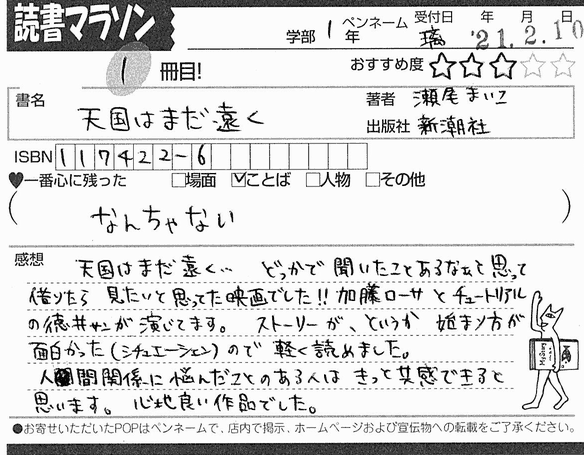 読書マラソン
学部 1年 ペンネーム 璃 受付日 年 月 日
'21.2.10
1 冊目!
おすすめ度 ★★★☆☆
書名 天国はまだ遠く
著者 瀬尾まいこ
出版社 新潮社
ISBN 117422-6
♥一番心に残った □場面 ☑ことば □人物 □その他
(なんちゃない)
感想 天国はまだ遠く… どっかで聞いたことあるなぁと思って
借りたら見たいと思ってた映画でした!! 加藤ローサとチュートリアル
の徳井サンが演じてます。 ストーリーが、というか 始まり方が
面白かった(シチュエーション)ので軽く読めました。
人間関係に悩んだことのある人はきっと共感できると
思います。 心地良い作品でした。
●お寄せいただいたPOPはペンネームで、店内で掲示、ホームページおよび宣伝物への転載をご了承ください。